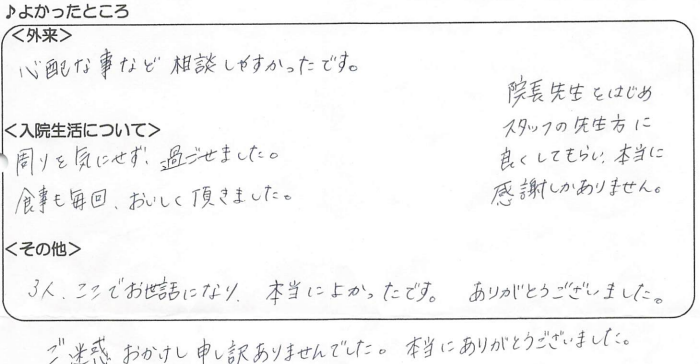 ♪よかったところ
<外来>
心配な事など 相談しやすかったです。
<入院生活について>
周りを気にせず、過ごせました。
食事も毎回、おいしく頂きました。
院長先生をはじめ
スタッフの先生方に
良くしてもらい、本当に
感謝しかありません。
<その他>
3人、ここでお世話になり、本当によかったです。ありがとうございました。
ご迷惑おかけし申し訳ありませんでした。本当にありがとうございました。